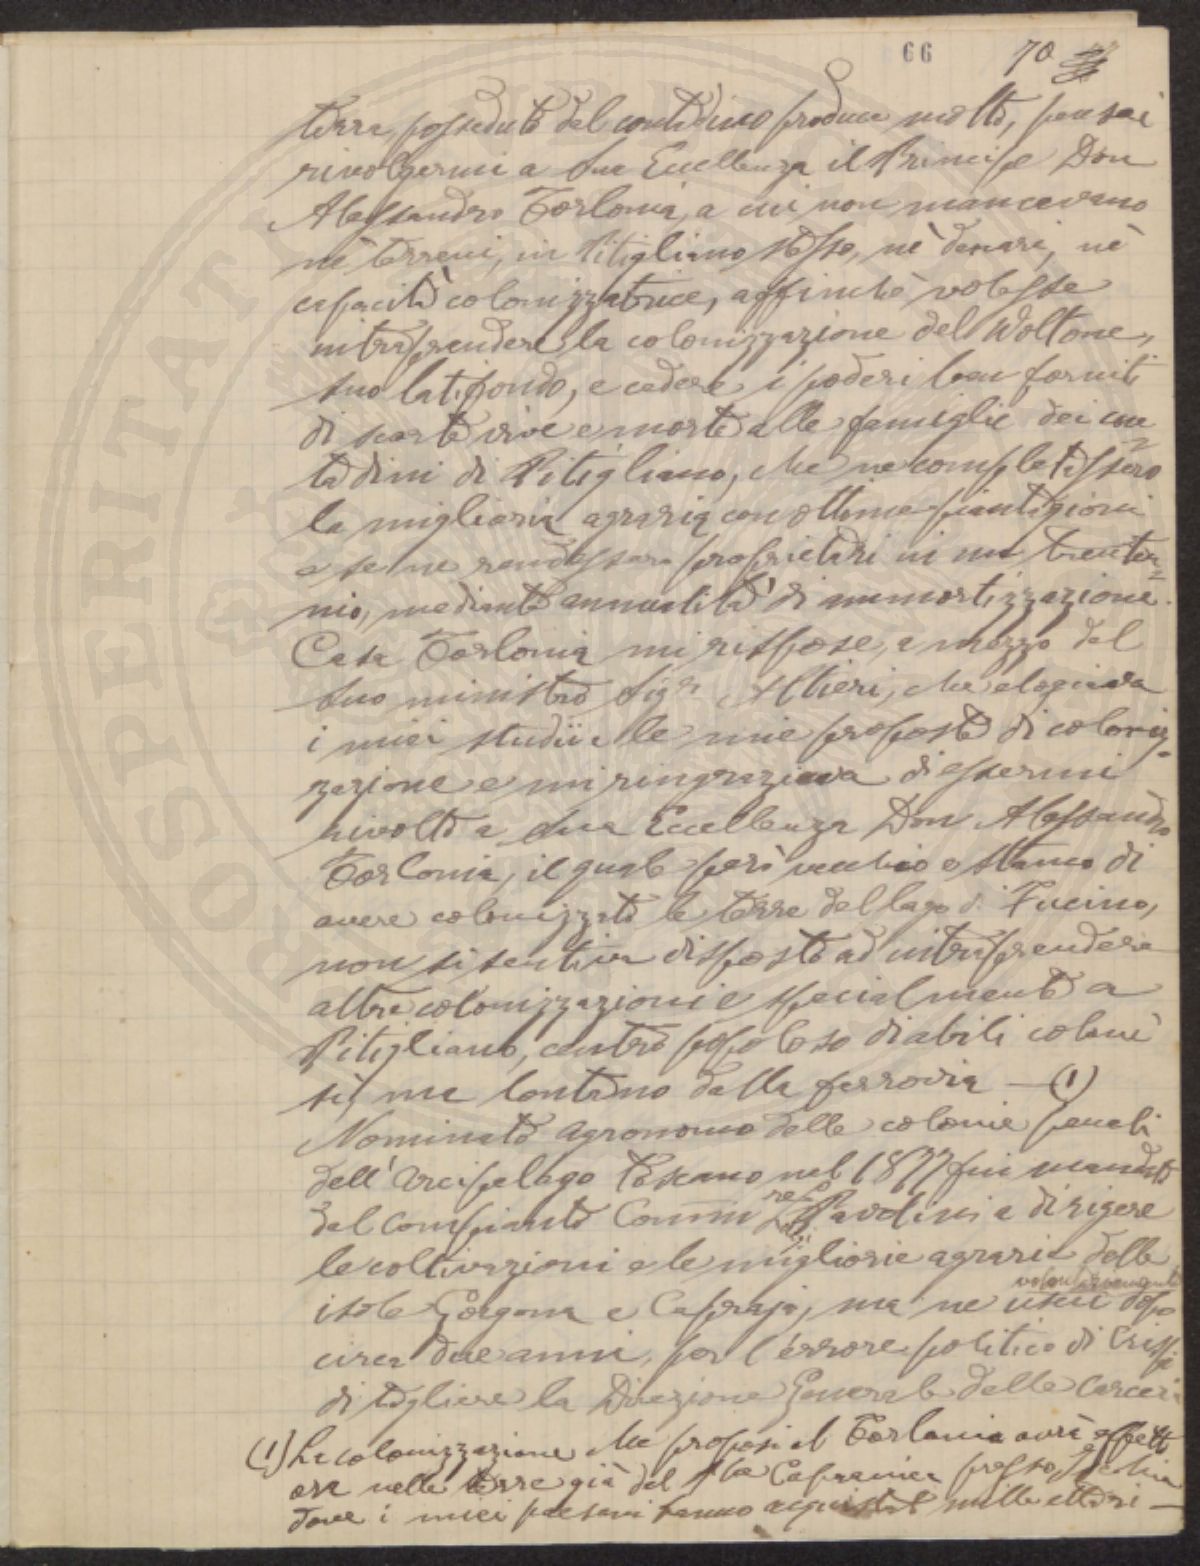 66 70
terra posseduta dal contadino produce molto, pensai
rivolgermi a Sua Eccellenza il Principe Don
Alessandro Torlonia, a cui non mancavano
nè terreni, in Pitigliano stesso, nè denari, nè
capacità colonizzatrice, affinchè volesse
intraprendere la colonizzazione del Voltone,
suo latifondo, e cedere i poderi ben forniti
di scorte vive e morte alle famiglie dei con=
tadini di Pitigliano, che ne completassero
la miglioria agraria con ottime piantagioni
e se ne rendessero proprietari in un trenten=
nio, mediante annualità di ammortizzazione.
Casa Torlonia mi rispose, a mezzo del
suo ministro Sigr Altieri, che elogiava
i miei studii e le mie proposte di coloniz=
zazione e mi ringraziava di essermi
rivolto a Sua Eccellenza Don Alessandro
Torlonia, il quale però vecchio e stanco di
avere colonizzato le terre del lago di Fucino,
non si sentiva disposto ad intraprendere
altre colonizzazioni e specialmente a
Pitigliano, centro popoloso di abili coloni
sì, ma lontano dalla ferrovia — (1)
Nominato agronomo delle colonie penali
dell'Arcipelago Toscano nel 1877 fui mandato
dal compianto Comm Pavolini a dirigere
le coltivazioni e le migliorie agrarie delle
isole Gorgona e Capraja, ma ne uscii volontariamente dopo
circa due anni, per l'errore politico di Crispi
di togliere la Direzione Generale delle Carceri
(1) La colonizzazione che proposi al Torlonia avrà effett
ora nelle terre già del Capranica presso
dove i miei paesani hanno acquistato mille ettari —